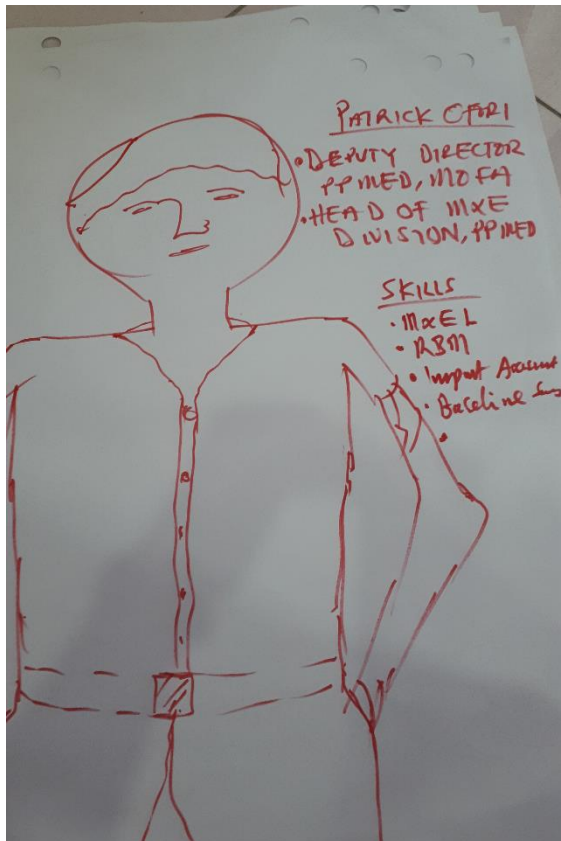 PATRICK OFORI
• DEPUTY DIRECTOR
PPMED, MOFA
• HEAD OF MXE
DIVISION, PPMED
SKILLS
• MXEL
• RBM
• Impact
• Baseline
•